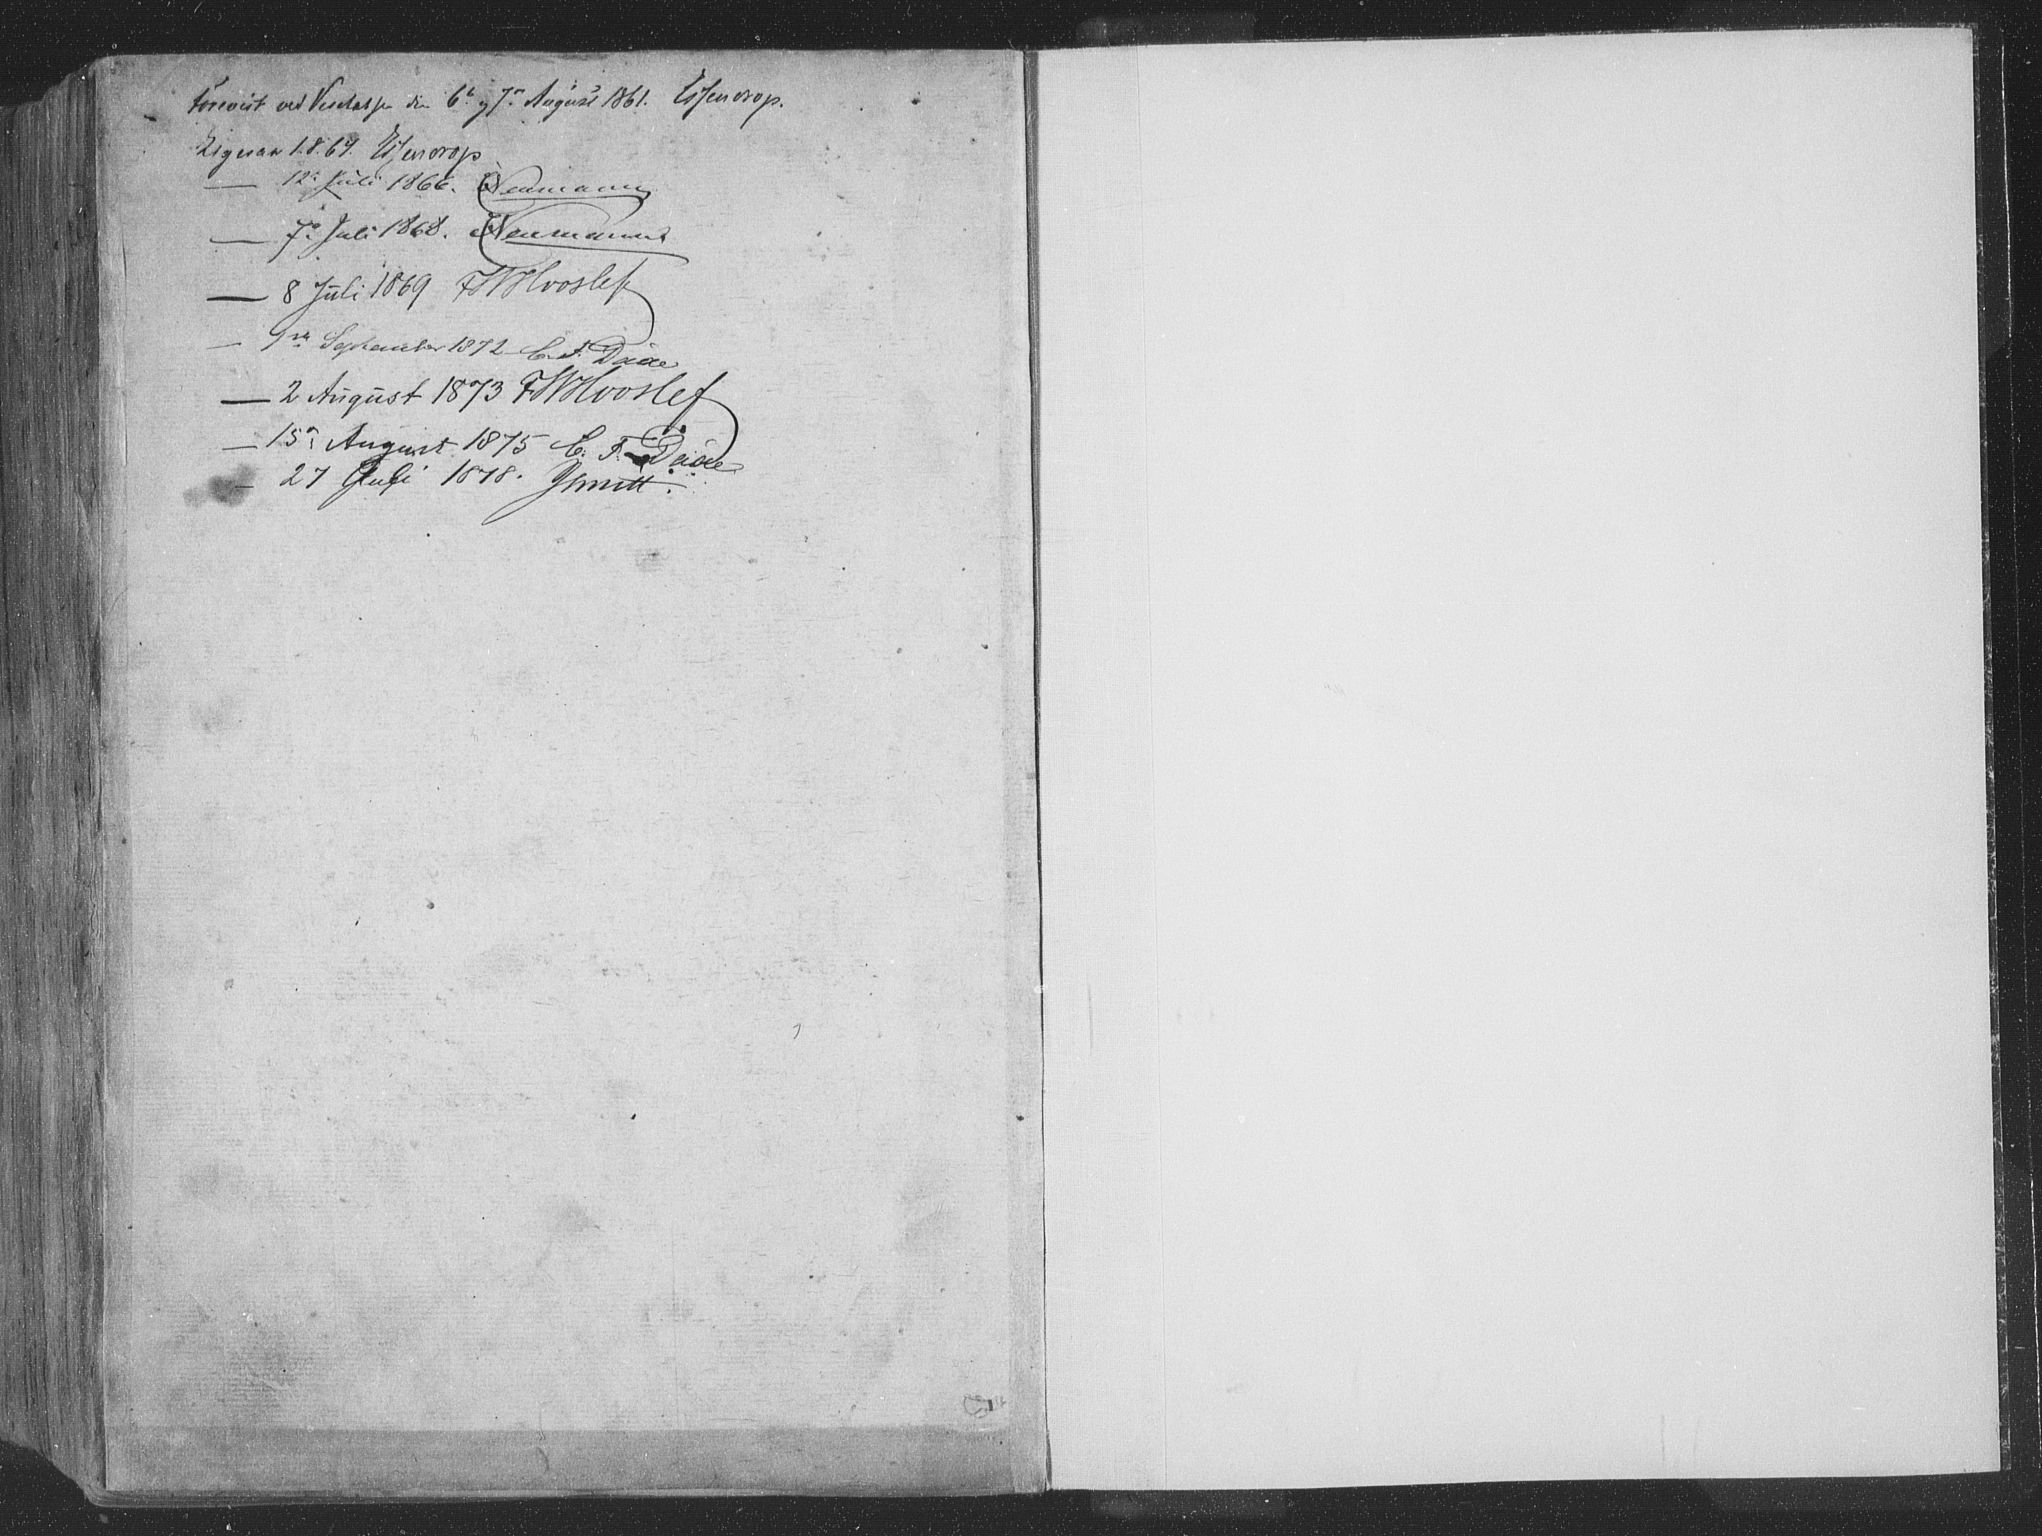 Forevist ved Visitatsen den 6te og 7de August 1861. Essendrop.
Ligesaa 1.8.64. Essendrop
— 12te Juli 1866. Neumann
— 7de Juli 1868. Neumann
— 8 Juli 1869 FWHvoslef
— September 1872 C. F. Daae
— 2 August 1873 FWHvoslef
— 15de August 1875 C. F. Daae
— 27 Juli 1878. Smitt.